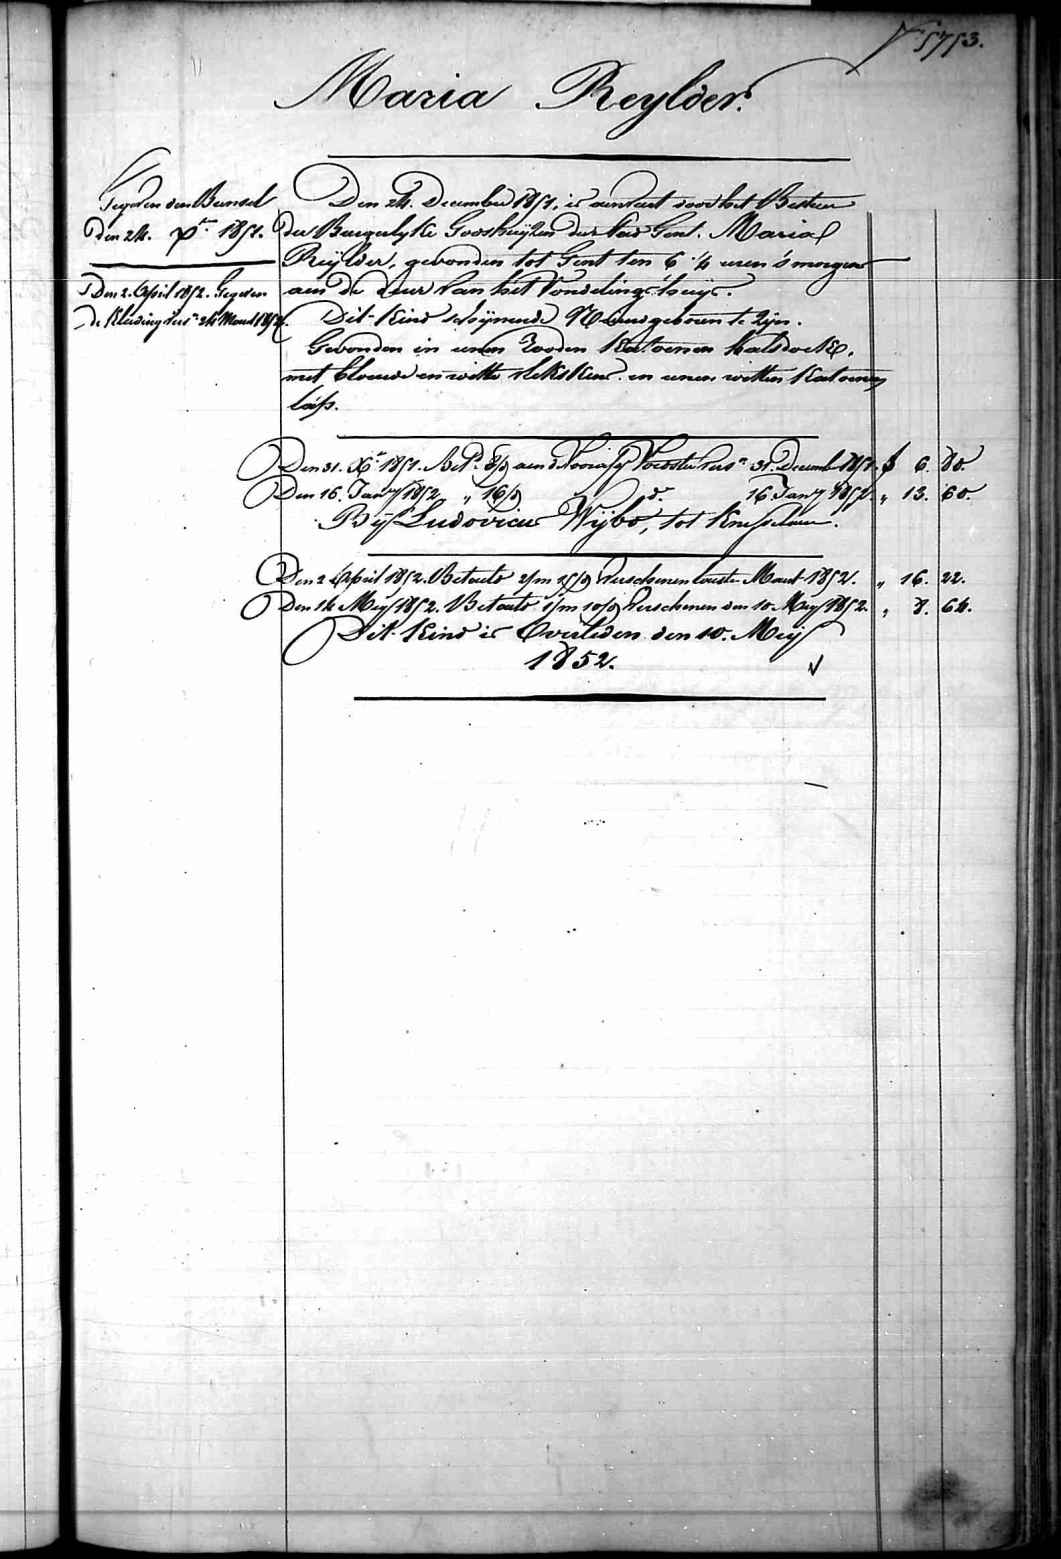 N° 5753.
Maria Reylder.
Gegeven den Bunsel
Den 24. Xbr 1851.
Den 2. April 1852. Gegeven
de Kleeding vers.n 3/4 Maend 1852.
Den 24. December 1851, is aenveert door het Bestuer
der Burgerlyke Godshuijzen der stad Gent. Maria
Reÿlder, gevonden tot Gent ten 6 1/4 uren 's morgens
aen de deur van het Vondelingshuijs.
Dit Kind schijnende Nieuwgeboren te zijn.
Gevonden in eenen rooden Katoenen halsdoek,
met blauwe en witte plekskens en eenen witten Katoenen
Den 31. Xbr 1851. Bet.d 8/d aen d Voorafg Voedster vers.n 31. Decemb. 1851. f 6. 80.
Den 16. Janry 1852 „ 16/d d.o 16 Janry 1852. „ 13. 60.
Bij Ludovicus Wijbo, tot Knesselaere.
Den 2 April 1852. Betaeld 2/m 15/d Verschenen laeste Maert 1852. „ 16. 22.
Den 14 Meij 1852. Betaeld 1/m 10/d Verschenen den 10. Meij 1852. „ 8. 64.
Dit Kind is Overleden den 10. Meij
1852.